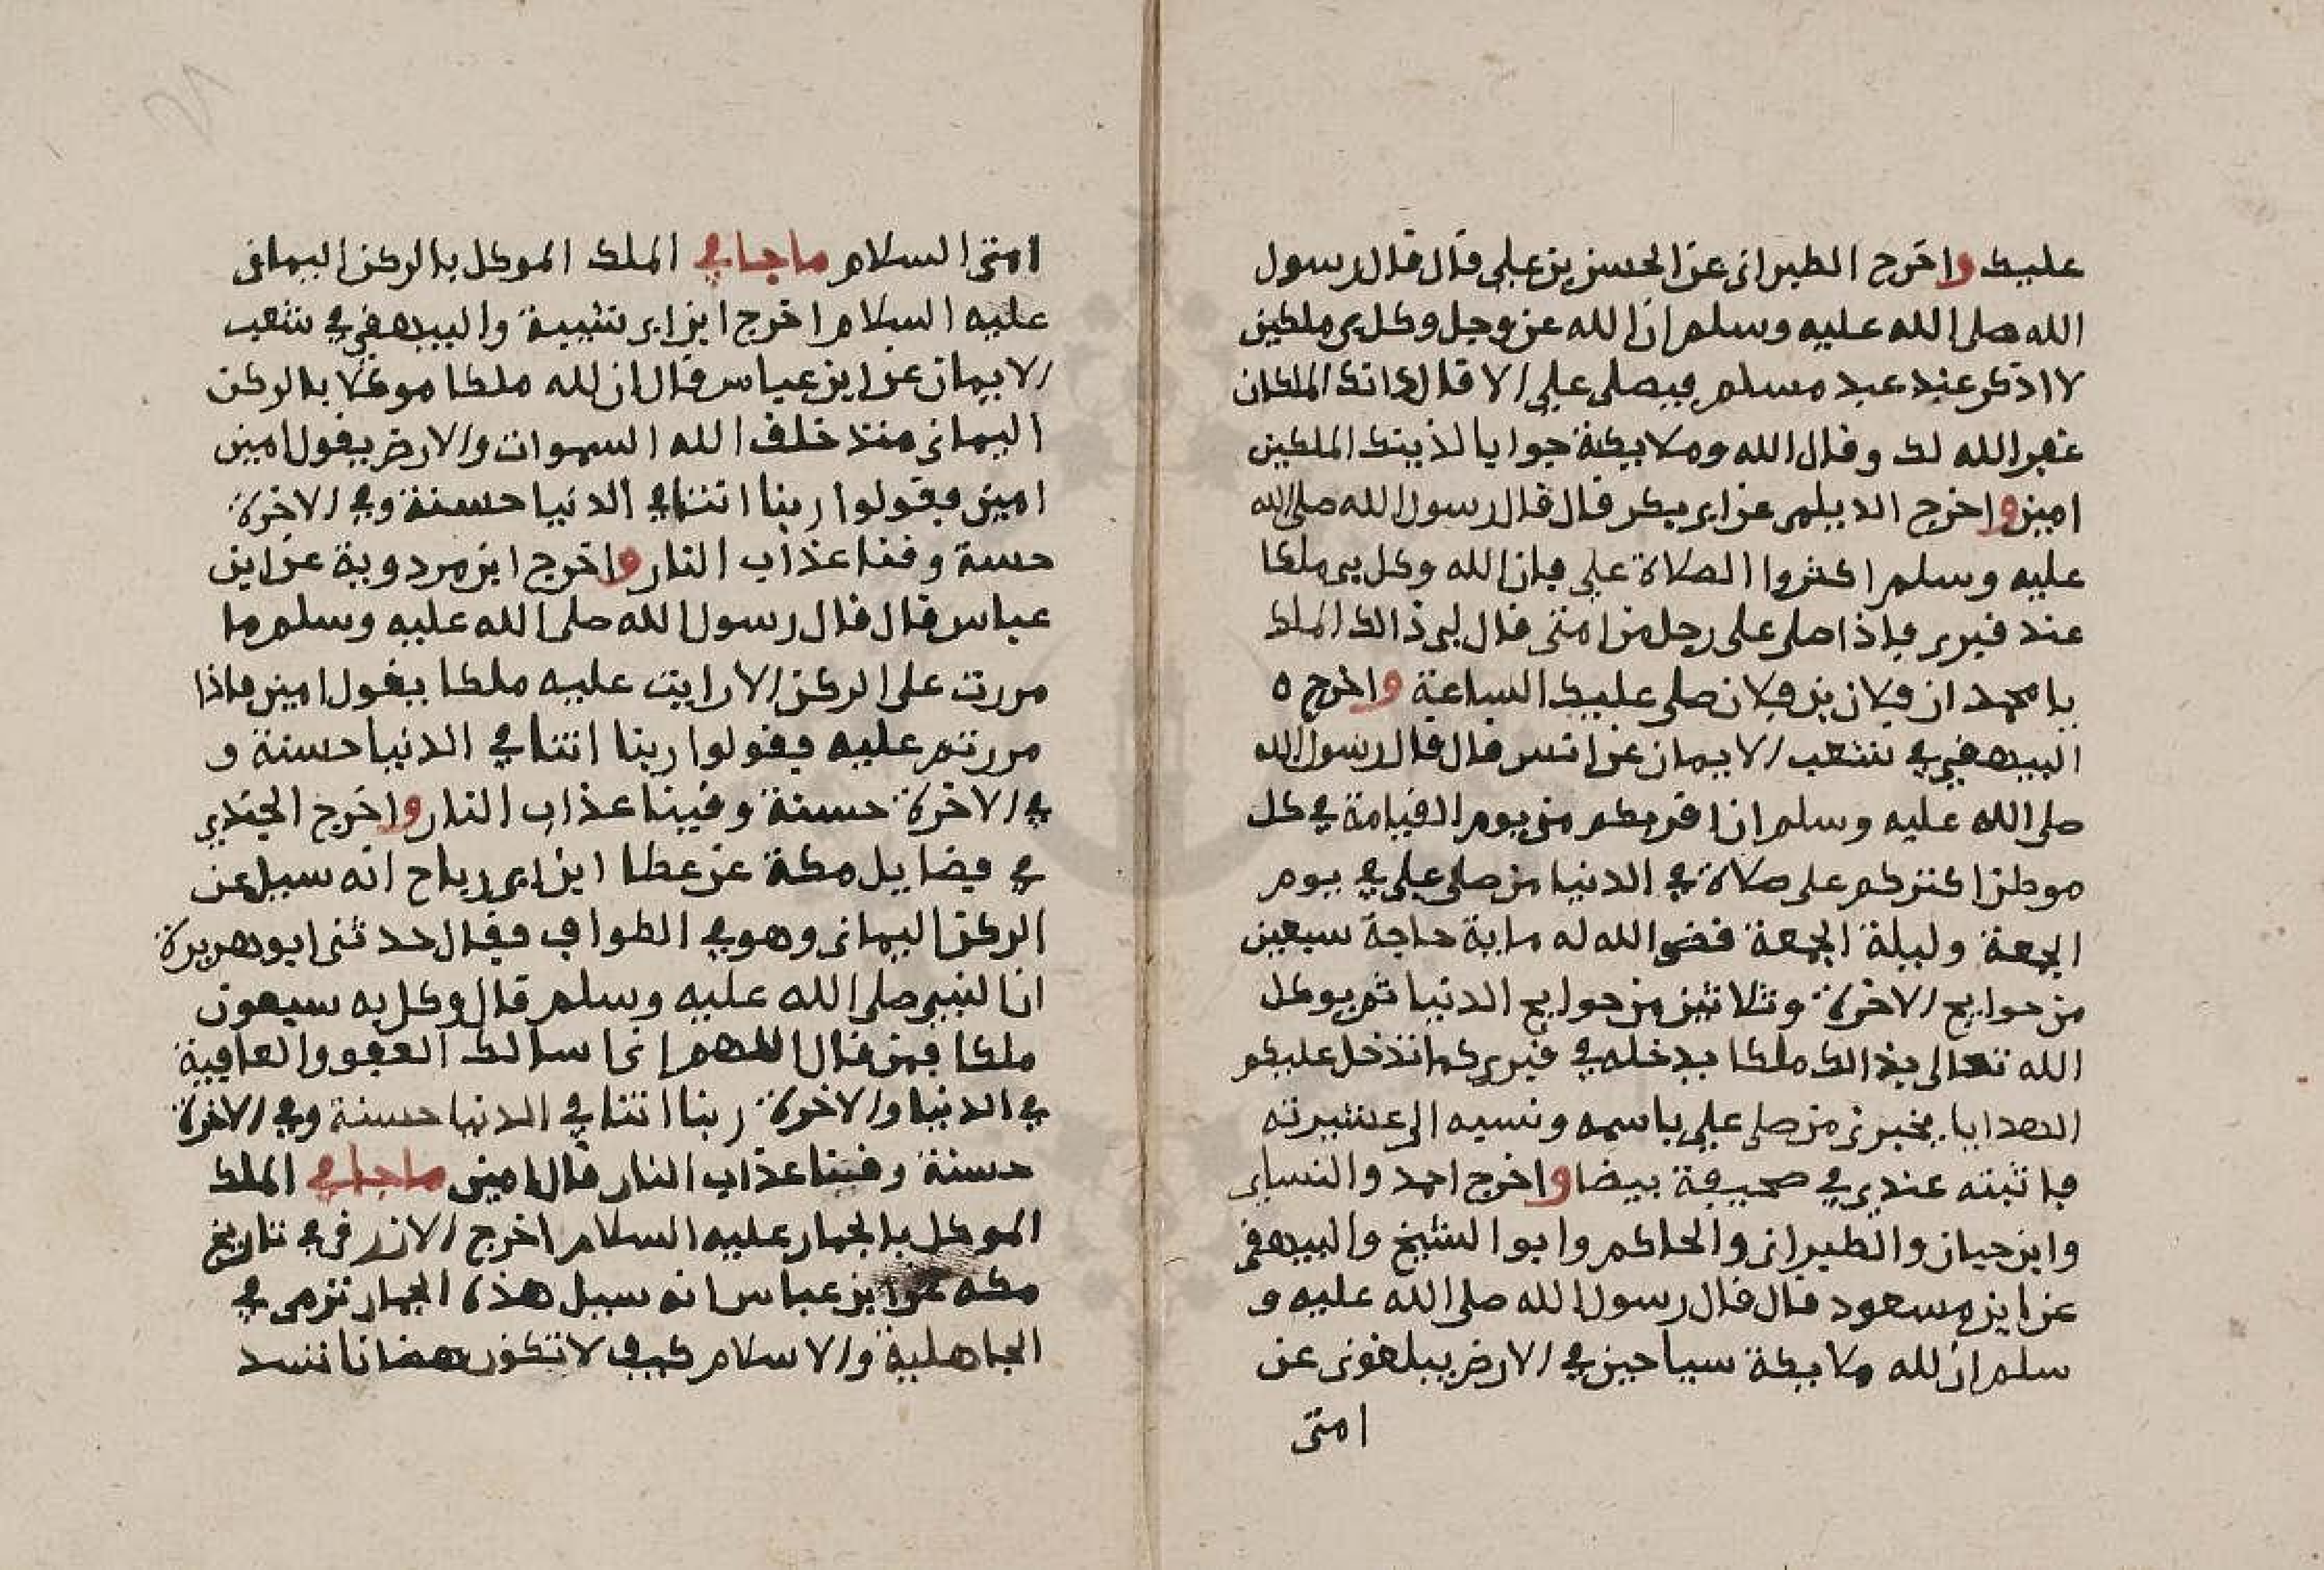 عليك واخرج الطبرانى عن الحسن بن على قال قال رسول
الله صلى الله عليه وسلم ان الله عز وجل وكل بى ملكين
لا اذكر عند عبد مسلم فيصلى على الا قال ذانك الملكان
غفر الله لك وقال الله وملايكته جوابا لذينك الملكين
امين واخرج الديلمى عن ابى بكر قال قال رسول الله صلى الله
عليه وسلم اكثروا الصلاة على فان الله وكل بى ملكا
عند قبرى فاذا صلى على رجل من امتى قال لى ذالك الملك
يا محمد ان فلان بن فلان صلى عليك الساعة واخرج ه
البيهقى في شعب الايمان عن انس قال قال رسول الله
صلى الله عليه وسلم ان اقربكم منى يوم القيامة في كل
موطن اكثركم على صلاة في الدنيا من صلى على في يوم
الجمعة وليلة الجمعة قضى الله له ماية حاجة سبعين
من حوايج الاخرة وثلاثين من حوايج الدنيا ثم يوكل
الله تعالى بذالك ملكا يدخله في قبرى كما تدخل عليكم
الهدايا يخبرنى من صلى على باسمه ونسبه الى عشيرته
فاثبته عندى في صحيفة بيضا واخرج احمد والنساى
وابن حبان والطبرانى والحاكم وابوا الشيخ والبيهقى
عن ابن مسعود قال قال رسول الله صلى الله عليه و
سلم ان لله ملايكة سياحين في الارض يبلغونى عن
امتى
امتى السلام ما جا في الملك الموكل بالركن اليمانى
عليه السلام اخرج ابن ابى شيبة والبيهقى في شعب
الايمان عن ابن عباس قال ان لله ملكا موكلا بالركن
اليمانى منذ خلق الله السموات والارض يقول امين
امين فقولوا ربنا اتنا في الدنيا حسنة وفي الاخرة
حسنة وقنا عذاب النار واخرج ابن مردوية عن ابن
عباس قال قال رسول الله صلى الله عليه وسلم ما
مررت على الركن الا رايت عليه ملكا يقول امين فاذا
مررتم عليه فقولوا ربنا اتنا في الدنيا حسنة و
في الاخرة حسنة وقينا عذاب النار واخرج الجندى
في فضايل مكة عن عطا ابن ابى رباح انه سيل عن
الركن اليمانى وهو في الطواف فقال حدثنى ابو هريرة
ان النبى صلى الله عليه وسلم قال وكل به سبعون
ملكا فمن قال اللهم انى اسالك العفو والعافية
في الدنيا والاخرة ربنا اتنا في الدنيا حسنة وفي الاخرة
حسنة وقينا عذاب النار قال امين ما جا في الملك
الموكل بالجمار عليه السلام اخرج الازرقى في تاريخ
مكه عن ابن عباس انه سيل هذه الجمار ترمى في
الجاهلية والاسلام كيف لا تكون هضابا تسد